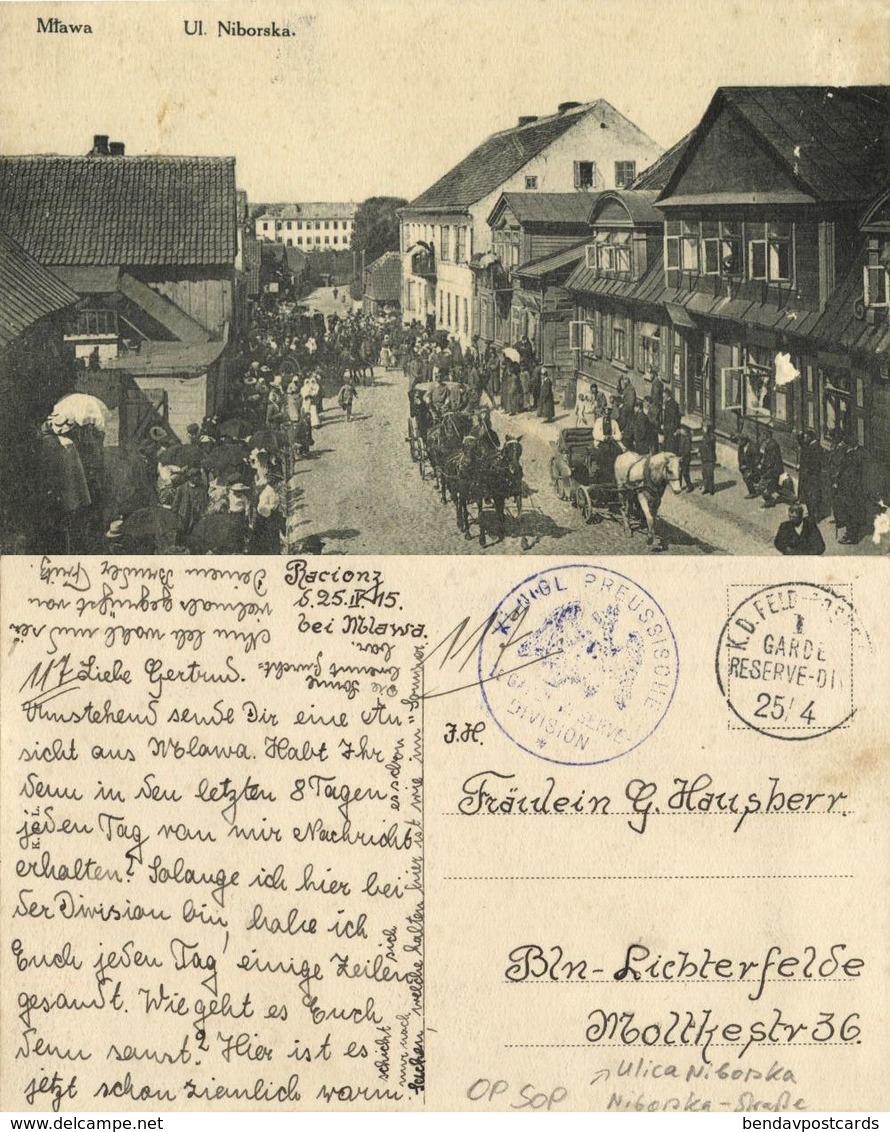 Mława Ul. Niborska.
Racionz
d. 25. IV. 15.
bei Mlawa.
117 Liebe Gertrud.
Umstehend sende Dir eine An=
sicht aus Mlawa. Habt Ihr
denn in den letzten 8 Tagen
jeden Tag von mir Nachricht
erhalten? Solange ich hier bei
der Division bin, habe ich
Euch jeden Tag einige Zeilen
gesandt. Wie geht es Euch
denn sonst? Hier ist es
jetzt schon ziemlich warm.
es schon
hier ist wie im Sommer
die Sonne
brennt furcht=
bar.
Nun leb wohl und sei
vielmals gegrüßt von
Deinem Bruder Fritz.
117
KÖNIGL. PREUSSISCHE
GARDE RESERVE
DIVISION
K.D. FELD-POST
1
GARDE
RESERVE-DIV
25/4
J.H.
Fräulein G. Hausherr.
Bln-Lichterfelde
Moltkestr 36.
Ulica Niborska
Niborska-Straße
OP SOP
delcampe.net
bendavpostcards